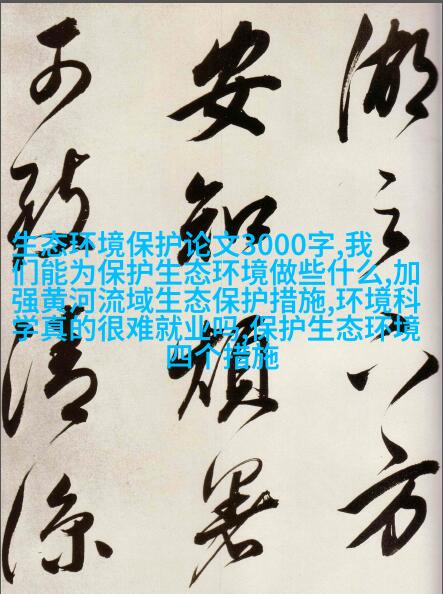 湖之方
安知煩暑
可清涼
生态环境保护论文3000字,我
们能为保护生态环境做些什么,加
强黄河流域生态保护措施,环境科
学真的很难就业吗,保护生态环境
四个措施